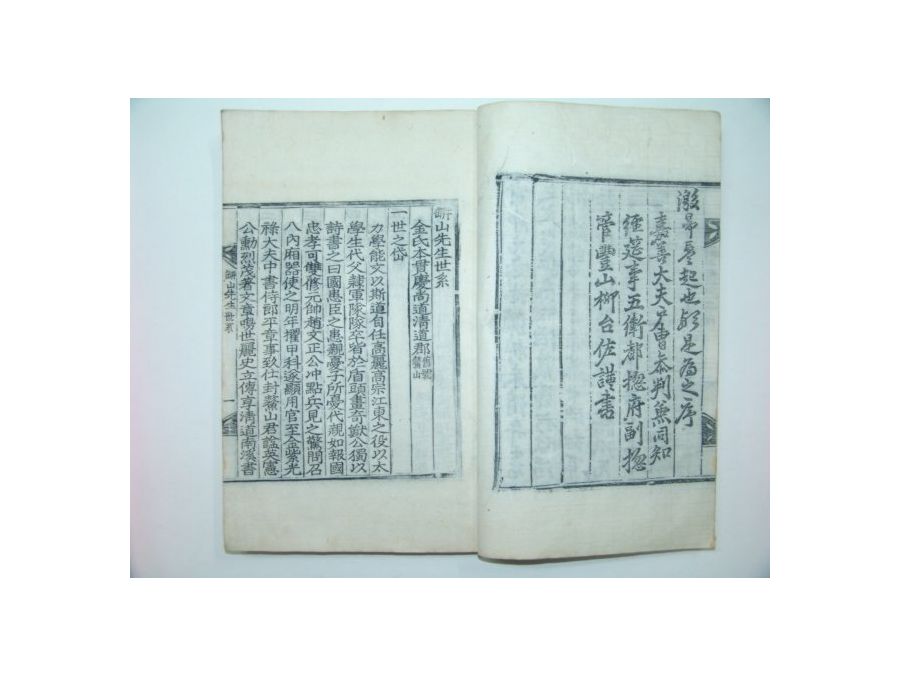 激昻憂起也於是爲之序
嘉善大夫吏曹參判兼同知
經筵事五衛都摠府副摠
管豐山柳台佐謹書
缾山先生世系
金氏本貫慶尚道清道郡 舊號鰲山
一世之岱
力學能文以斯道自任高麗高宗江東之役以太
學生代父隸軍隊隊卒皆於盾頭畫奇獸公獨以
詩書之曰國患臣之患親憂子所憂代親如報國
忠孝可雙修元帥趙文正公冲點兵見之驚問召
八內廂器使之明年擢甲科遂顯用官至金紫光
祿大夫中書侍郎平章事致仕封鰲山君諡英憲
公勳烈茂著文章鳴世麗史立傳享清道南溪書
缾山先生世系
一